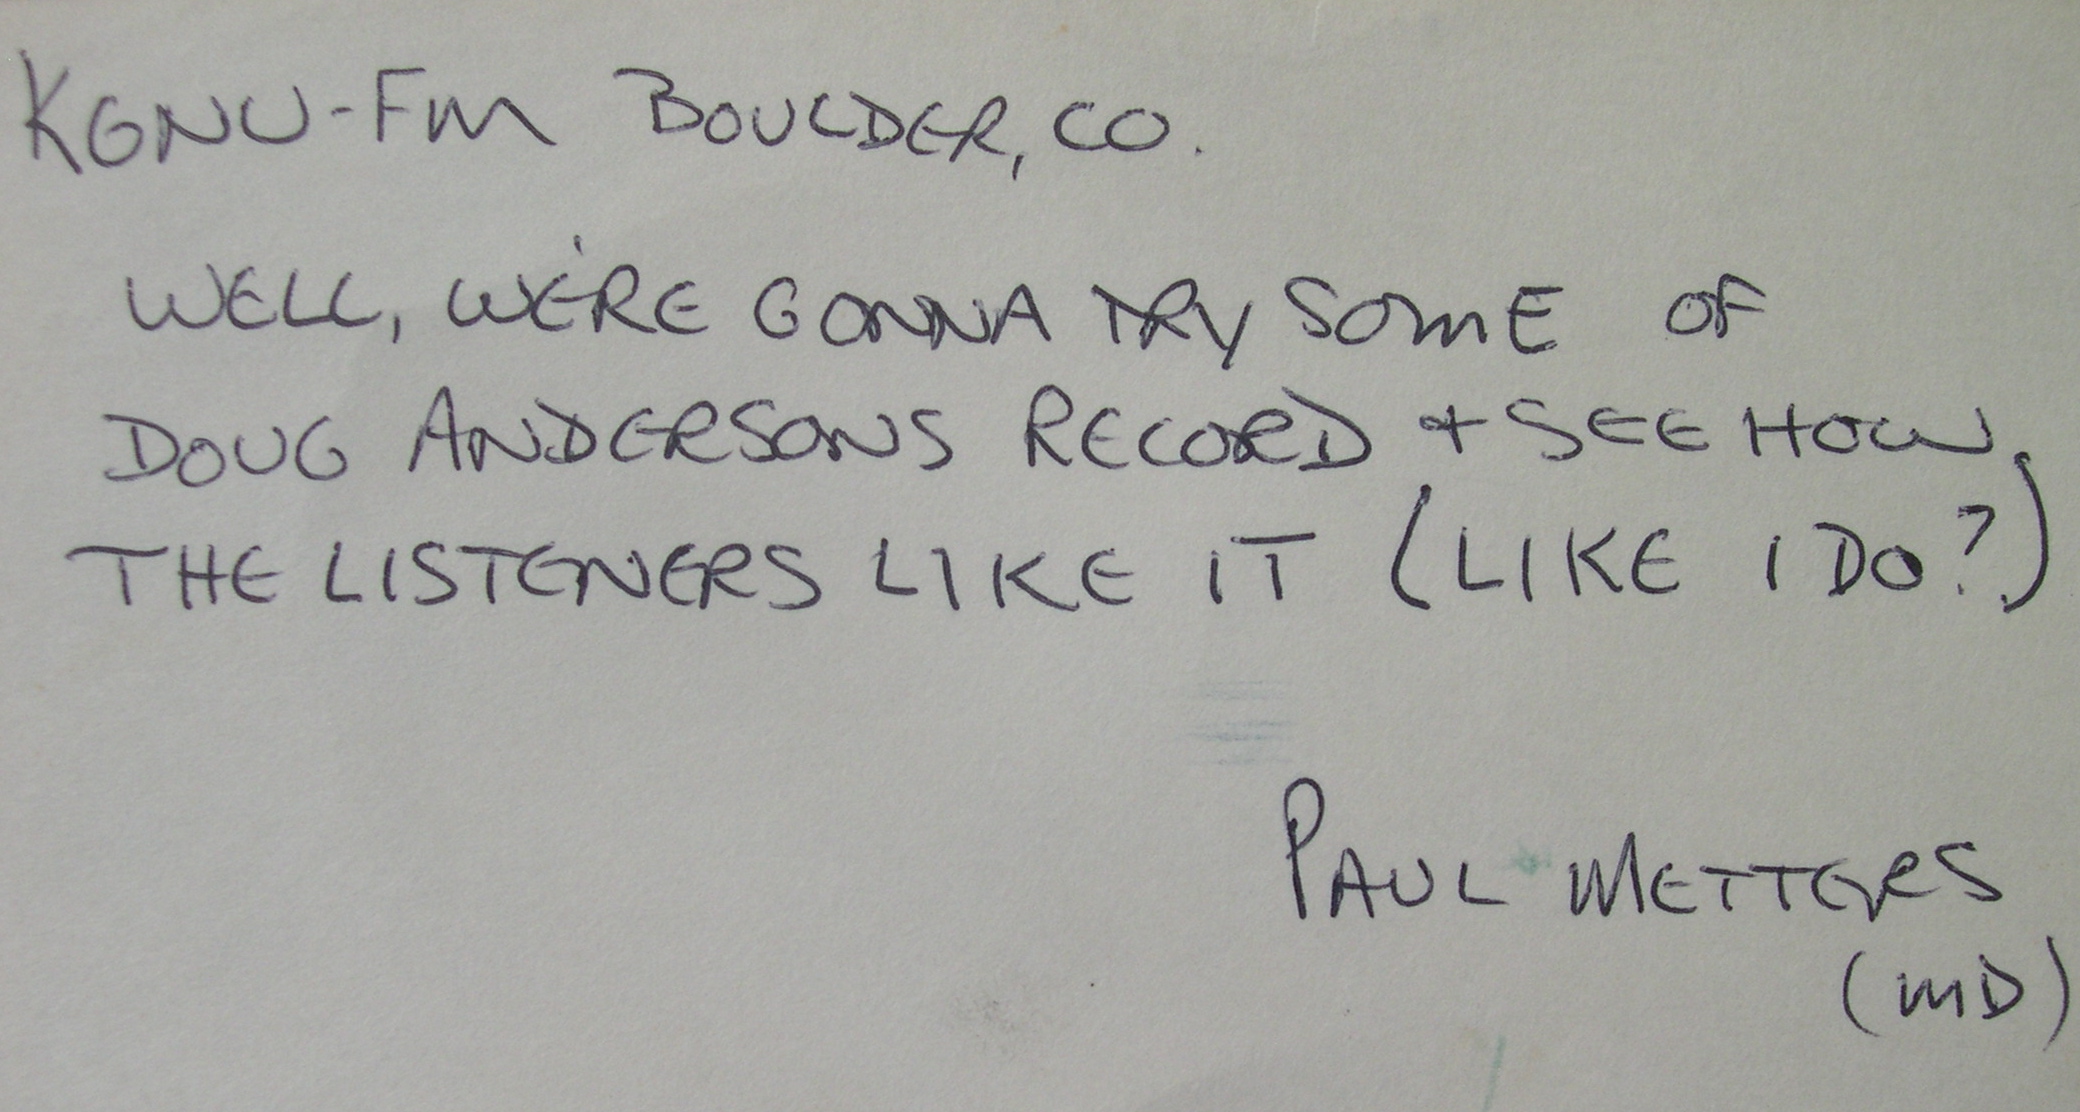 KGNU-FM BOULDER, CO.
WELL, WE'RE GONNA TRY SOME OF
DOUG ANDERSONS RECORD + SEE HOW
THE LISTENERS LIKE IT (LIKE I DO?)
PAUL METTERS
(MD)